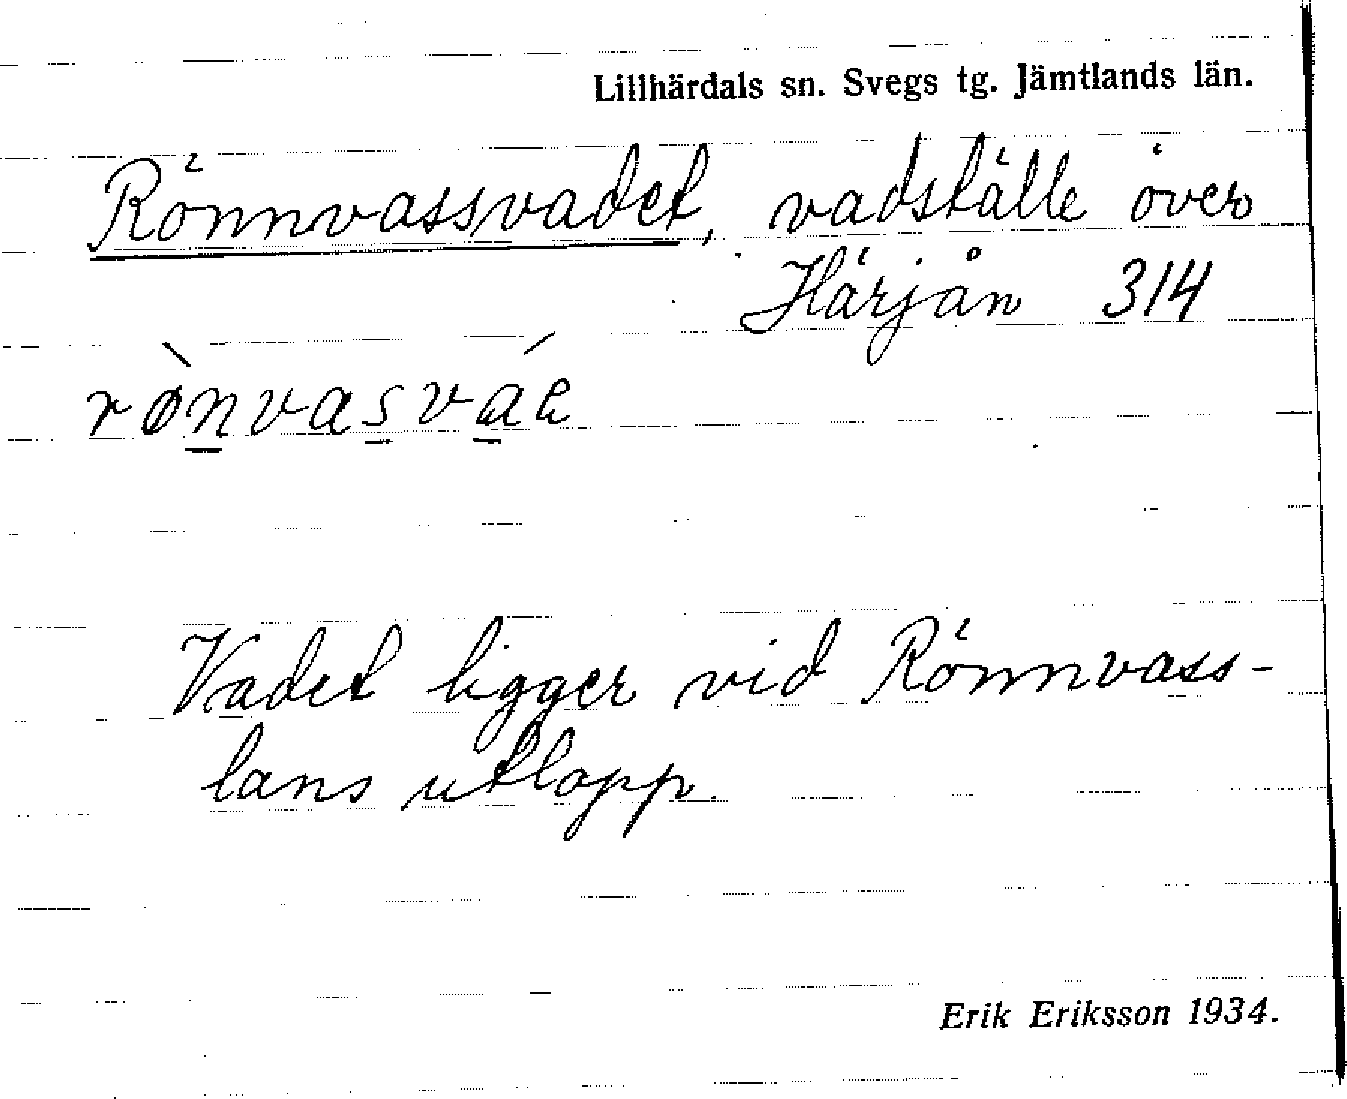 Lillhärdals sn. Svegs tg. Jämtlands län.
Rönnvassvadet, vadställe över
Härjån 314
rø̀nvasváe
Vadet ligger vid Rönnvass-
lans utlopp.
Erik Eriksson 1934.